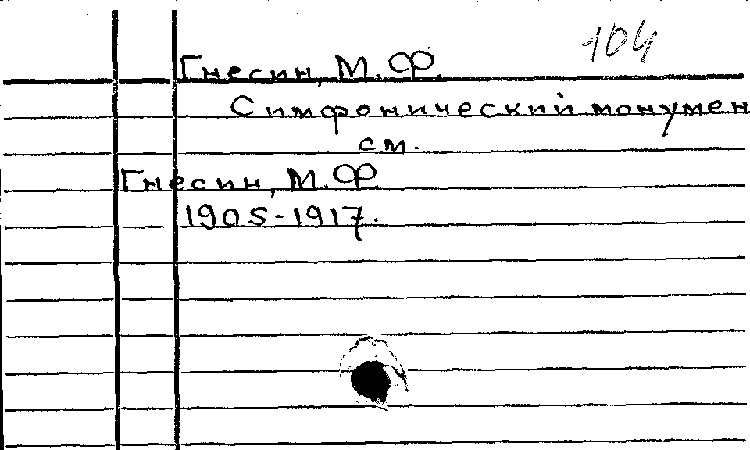 104
Гнесин, М. Ф.
Симфонический монумен
см.
Гнесин, М. Ф
1905-1917.